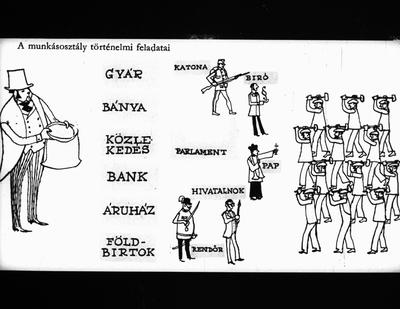 A munkásosztály történelmi feladatai
GYÁR
BÁNYA
KÖZLE-
KEDÉS
BANK
ÁRUHÁZ
FÖLD-
BIRTOK
KATONA
BIRÓ
PARLAMENT
PAP
HIVATALNOK
RENDŐR